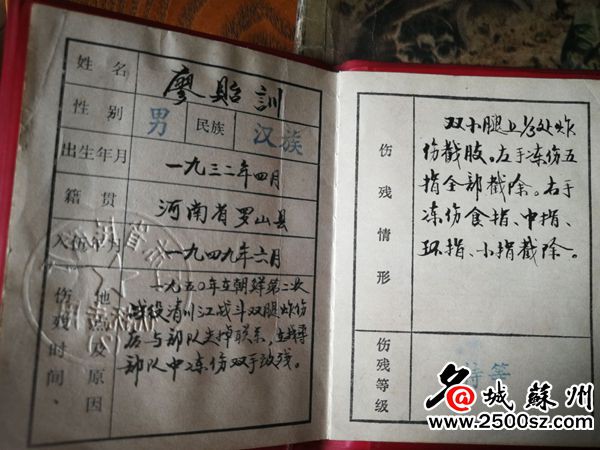 姓名 廖贻訓
性别 男 民族 汉族
出生年月 一九三二年四月
籍贯 河南省罗山县
入伍年月 一九四九年六月
伤残时间、地点及原因
一九五〇年在朝鲜第二次
战役清川江战斗双腿炸伤
后与部队失掉联系,在找寻
部队中冻伤双手致残。
伤残情形
双小腿上1/3处炸
伤截肢。左手冻伤五
指全部截除。右手
冻伤食指、中指、
环指、小指截除。
伤残等级 特等
名@城蘇州
www.2500sz.com